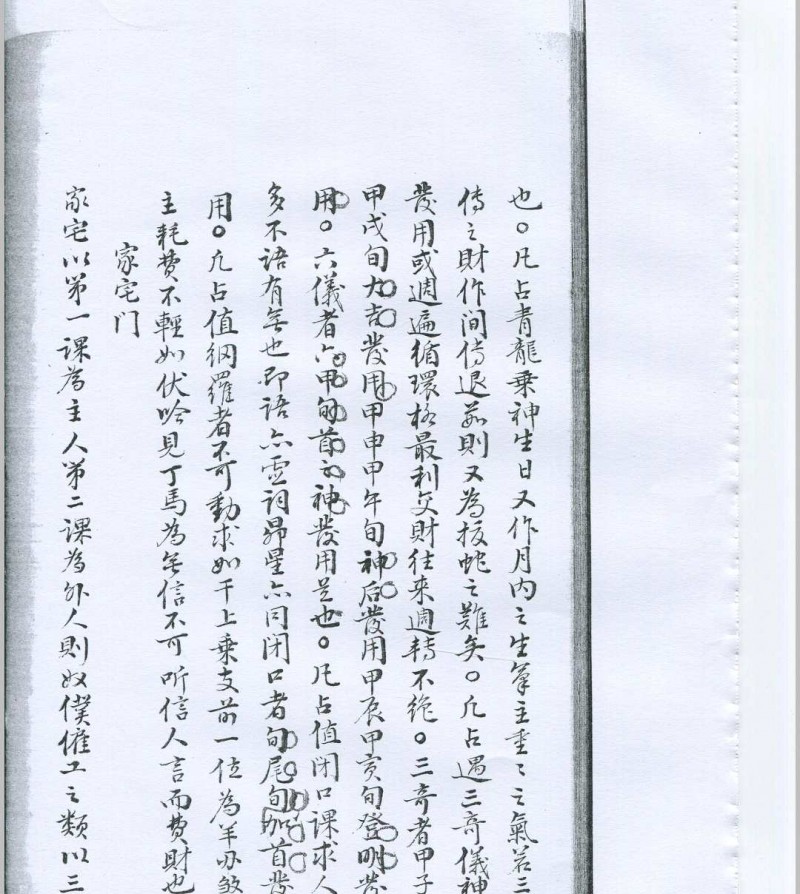 也。凡占青龍乘神生日又作月内之生氣主重々之氣若三
傳之財作间傳退茹則又為拔蛇之難矣。凡占遇三奇儀神
發用或週遍循環格最利交財往来週轉不絶。三奇者甲子
甲戌旬大吉發用甲申甲午旬神后發用甲辰甲寅旬登明發
用。六儀者六甲旬首之神發用是也。凡占值闭口課求人
多不語有無也即語亦虚词昴星亦同闭口者旬尾旬加首發
用。凡占值網羅者不可動求如干上乘支前一位為羊刃煞
主耗費不輕如伏吟見丁馬為無信不可听信人言而費財也
家宅门
家宅以第一課為主人第二課為外人則奴僕傭工之類以三